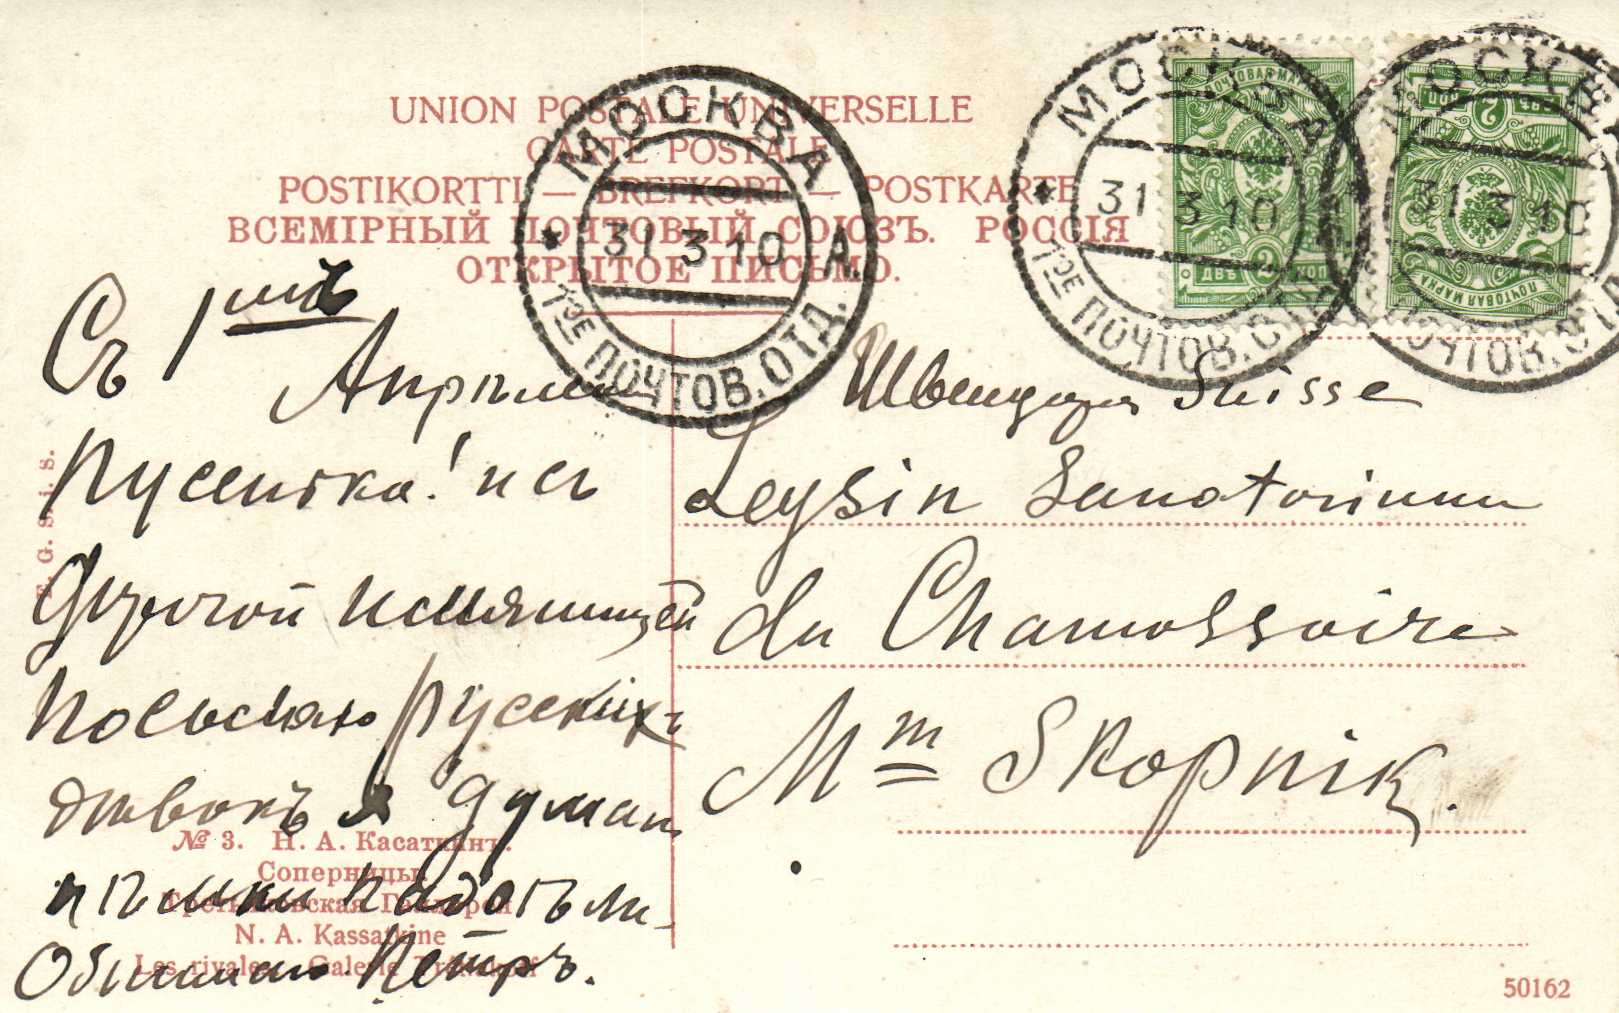 UNION POSTALE UNIVERSELLE
CARTE POSTALE
POSTIKORTTI — BREFKORT — POSTKARTE
ВСЕМІРНЫЙ ПОЧТОВЫЙ СОЮЗЪ. РОССІЯ
ОТКРЫТОЕ ПИСЬМО.
МОСКВА
31 3 10 А.
1ОЕ ПОЧТОВ. ОТД.
МОСКВА
31 3 10
1ОЕ ПОЧТОВ. ОТД.
МОСКВА
31 3 10
ПОЧТОВ. ОТД.
ПОЧТОВАЯ МАРКА
ДВѢ 2 КОП
ПОЧТОВАЯ МАРКА
ДВѢ 2 КОП
Съ 1мъ
Апрѣля
Пусенька! и съ
дорогой
посылаю русскихъ
дѣвокъ я думаю
нѣмки надоѣли
Обнимаю Петръ.
Швейцарія Suisse
Leysin Sanatorium
du Chamossaire
Mm Skopnik.
E. G. S. i. S.
№ 3. Н. А. Касаткинъ.
Соперницы.
Третьяковская Галлерея
N. A. Kassatkine
Les rivales. Galerie Tretiakoff
50162